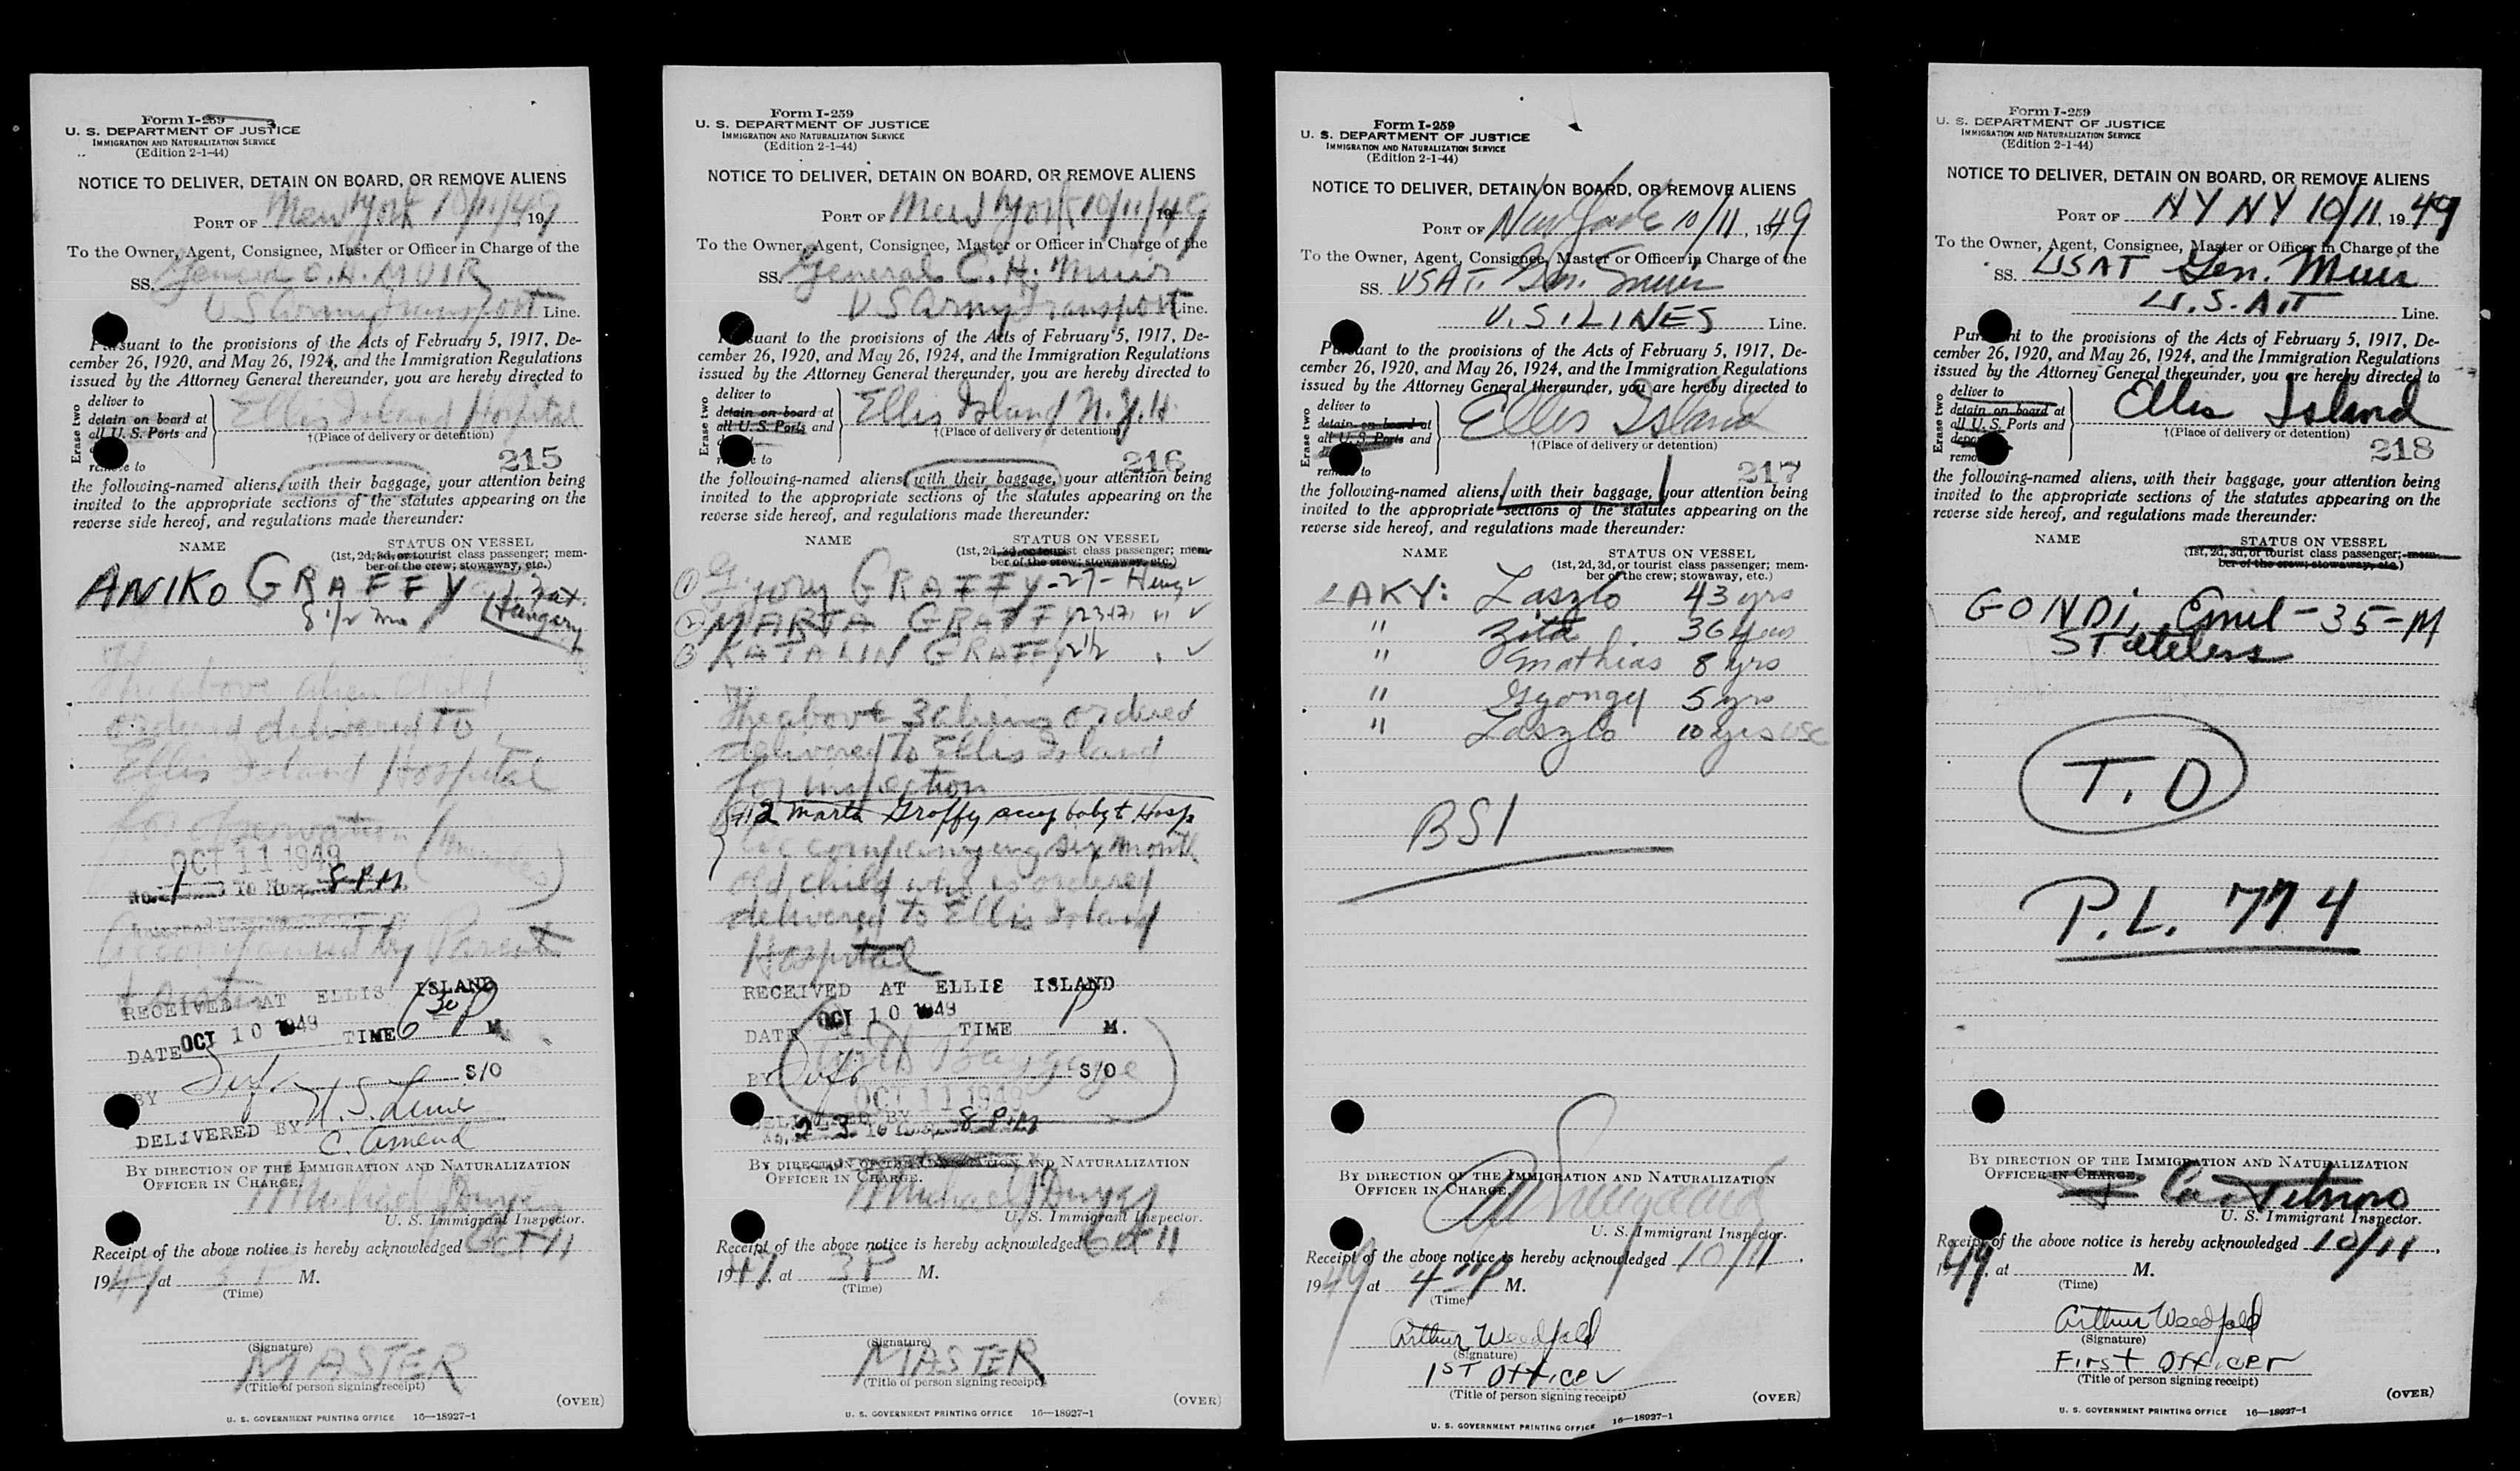 Form I-259
U. S. DEPARTMENT OF JUSTICE
IMMIGRATION AND NATURALIZATION SERVICE
(Edition 2-1-44)
NOTICE TO DELIVER, DETAIN ON BOARD, OR REMOVE ALIENS
PORT OF New York 10/11/49 19
To the Owner, Agent, Consignee, Master or Officer in Charge of the
SS. General C. H. MUIR
US Army Transport Line.
Pursuant to the provisions of the Acts of February 5, 1917, De-
cember 26, 1920, and May 26, 1924, and the Immigration Regulations
issued by the Attorney General thereunder, you are hereby directed to
Erase two
deliver to
detain on board at
all U. S. Ports and
remove to
Ellis Island Hospital
†(Place of delivery or detention)
215
the following-named aliens, with their baggage, your attention being
invited to the appropriate sections of the statutes appearing on the
reverse side hereof, and regulations made thereunder:
NAME STATUS ON VESSEL
(1st, 2d, 3d, or tourist class passenger; mem-
ber of the crew; stowaway, etc.)
ANIKO GRAFFY
8 1/2 mo Hungary
The above alien child
ordered delivered TO
Ellis Island Hospital
for observation (measles)
OCT 11 1949
No. 1 To Hosp. 8 P.M.
Accompanied by Parents
RECEIVED AT ELLIS ISLAND
DATE OCT 10 1949 TIME 6 30 P M
BY S/O
DELIVERED BY
C. Amend
BY DIRECTION OF THE IMMIGRATION AND NATURALIZATION
OFFICER IN CHARGE.
Michael
U. S. Immigrant Inspector.
Receipt of the above notice is hereby acknowledged Oct 11
1949, at 3 P M.
(Time)
(Signature)
MASTER
(Title of person signing receipt)
(OVER)
U. S. GOVERNMENT PRINTING OFFICE 16—18927-1
Form I-259
U. S. DEPARTMENT OF JUSTICE
IMMIGRATION AND NATURALIZATION SERVICE
(Edition 2-1-44)
NOTICE TO DELIVER, DETAIN ON BOARD, OR REMOVE ALIENS
PORT OF New York 10/11/49 19
To the Owner, Agent, Consignee, Master or Officer in Charge of the
SS. General C. H. Muir
US Army Transport Line.
Pursuant to the provisions of the Acts of February 5, 1917, De-
cember 26, 1920, and May 26, 1924, and the Immigration Regulations
issued by the Attorney General thereunder, you are hereby directed to
Erase two
deliver to
detain on board at
all U. S. Ports and
remove to
Ellis Island N.Y.H.
†(Place of delivery or detention)
216
the following-named aliens, with their baggage, your attention being
invited to the appropriate sections of the statutes appearing on the
reverse side hereof, and regulations made thereunder:
NAME STATUS ON VESSEL
(1st, 2d, 3d, or tourist class passenger; mem-
ber of the crew; stowaway, etc.)
① GRAFFY - 27 - Hung ✓
② MARTA GRAFFY 23 " ✓
③ KATALIN GRAFFY 2 1/2 ✓
The above 3 aliens ordered
delivered To Ellis Island
for inspection
#2 Marta Graffy accop baby t Hosp
accompanying six month
old child who is ordered
delivered to Ellis Island
Hospital
RECEIVED AT ELLIS ISLAND
DATE OCT 10 1949 TIME P M.
With Baggage
BY S/O
OCT 11 1949
DELIVERED BY
2-3 8 P.M
BY DIRECTION OF THE IMMIGRATION AND NATURALIZATION
OFFICER IN CHARGE.
Michael
U. S. Immigrant Inspector.
Receipt of the above notice is hereby acknowledged Oct 11
1949, at 3 P M.
(Time)
(Signature)
MASTER
(Title of person signing receipt)
(OVER)
U. S. GOVERNMENT PRINTING OFFICE 16—18927-1
Form I-259
U. S. DEPARTMENT OF JUSTICE
IMMIGRATION AND NATURALIZATION SERVICE
(Edition 2-1-44)
NOTICE TO DELIVER, DETAIN ON BOARD, OR REMOVE ALIENS
PORT OF New York 10/11, 1949
To the Owner, Agent, Consignee, Master or Officer in Charge of the
SS. USAT. Gen. Muir
U.S. LINES Line.
Pursuant to the provisions of the Acts of February 5, 1917, De-
cember 26, 1920, and May 26, 1924, and the Immigration Regulations
issued by the Attorney General thereunder, you are hereby directed to
Erase two
deliver to
detain on board at
all U. S. Ports and
remove to
Ellis Island
†(Place of delivery or detention)
217
the following-named aliens, with their baggage, your attention being
invited to the appropriate sections of the statutes appearing on the
reverse side hereof, and regulations made thereunder:
NAME STATUS ON VESSEL
(1st, 2d, 3d, or tourist class passenger; mem-
ber of the crew; stowaway, etc.)
LAKY: Laszlo 43 yrs
" Zita 36 yrs
" Mathias 8 yrs
" Gyongy 5 yrs
" Laszlo 10 yrs USC
BSI
BY DIRECTION OF THE IMMIGRATION AND NATURALIZATION
OFFICER IN CHARGE.
U. S. Immigrant Inspector.
Receipt of the above notice is hereby acknowledged 10/11,
1949 at 4 P M.
(Time)
Arthur Weedfald
(Signature)
1ST Officer
(Title of person signing receipt)
(OVER)
U. S. GOVERNMENT PRINTING OFFICE 16—18927-1
Form I-259
U. S. DEPARTMENT OF JUSTICE
IMMIGRATION AND NATURALIZATION SERVICE
(Edition 2-1-44)
NOTICE TO DELIVER, DETAIN ON BOARD, OR REMOVE ALIENS
PORT OF NY NY 10/11, 1949
To the Owner, Agent, Consignee, Master or Officer in Charge of the
SS. USAT Gen. Muir
U.S.A.T Line.
Pursuant to the provisions of the Acts of February 5, 1917, De-
cember 26, 1920, and May 26, 1924, and the Immigration Regulations
issued by the Attorney General thereunder, you are hereby directed to
Erase two
deliver to
detain on board at
all U. S. Ports and
remove
Ellis Island
†(Place of delivery or detention)
218
the following-named aliens, with their baggage, your attention being
invited to the appropriate sections of the statutes appearing on the
reverse side hereof, and regulations made thereunder:
NAME STATUS ON VESSEL
(1st, 2d, 3d, or tourist class passenger; mem-
ber of the crew; stowaway, etc.)
GONDI, Emil - 35 - M
Stateless
T.D
P.L. 774
BY DIRECTION OF THE IMMIGRATION AND NATURALIZATION
OFFICER IN CHARGE.
U. S. Immigrant Inspector.
Receipt of the above notice is hereby acknowledged 10/11,
1949, at M.
(Time)
Arthur Weedfald
(Signature)
First Officer
(Title of person signing receipt)
(OVER)
U. S. GOVERNMENT PRINTING OFFICE 16—18927-1